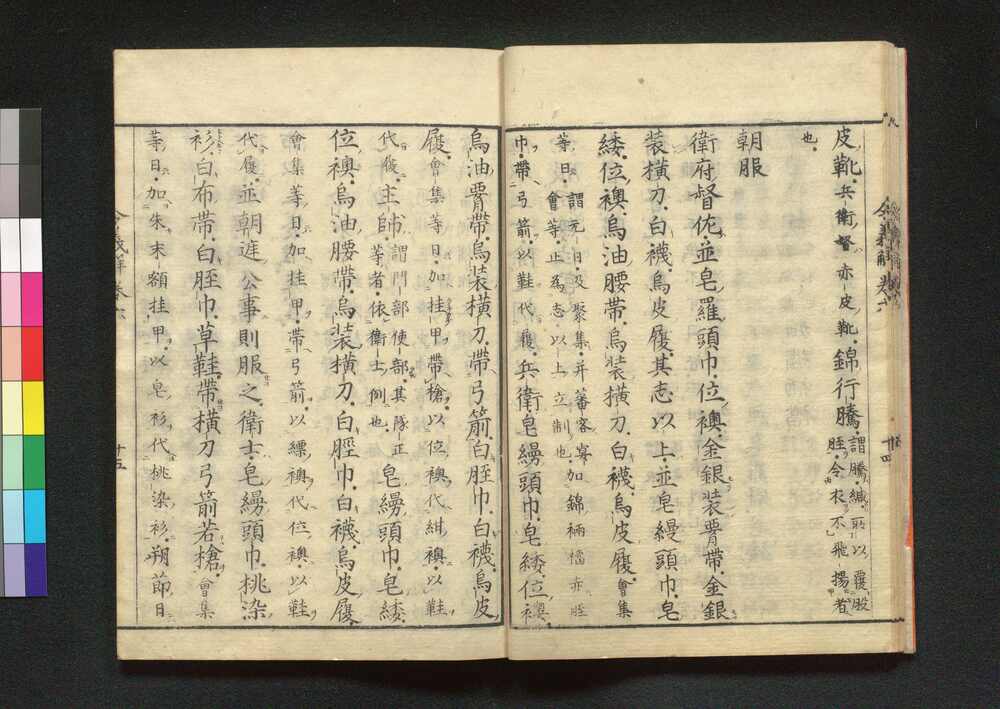 皮靴。兵衛督亦皮靴。錦行縢。謂。縢。緘。所以覆股
脛。令衣不飛揚者
也。
朝服
衛府督佐。並皂羅頭巾。位襖。金銀装腰帶。金銀
装横刀。白襪。烏皮履。其志以上。並皂縵頭巾。皂
緌。位襖。烏油腰帶。烏装横刀。白襪。烏皮履。會集
等日。謂。元日。及聚集。并蕃客宴
會等。正為志以上立制也。加錦裲襠。赤脛
巾。帶弓箭。以鞋代履。兵衛皂縵頭巾。皂緌。位襖。
烏油腰帶。烏装横刀。帶弓箭。白脛巾。白襪。烏皮
履。會集等日。加挂甲。帶槍。以位襖代紺襖。以鞋
代履。主帥。謂。門部。使部。其隊正
等者。依衛士例也。皂縵頭巾。皂緌。
位襖。烏油腰帶。烏装横刀。白脛巾。白襪。烏皮履。
會集等日。加挂甲。帶弓箭。以縹襖代位襖。以鞋
代履。並朝庭公事則服之。衛士皂縵頭巾。桃染
衫。白布帶。白脛巾。草鞋。帶横刀弓箭若槍。會集
等日。加朱末額挂甲。以皂衫代桃染衫。朔節日
令義解卷六
十四
令義解卷六
十五